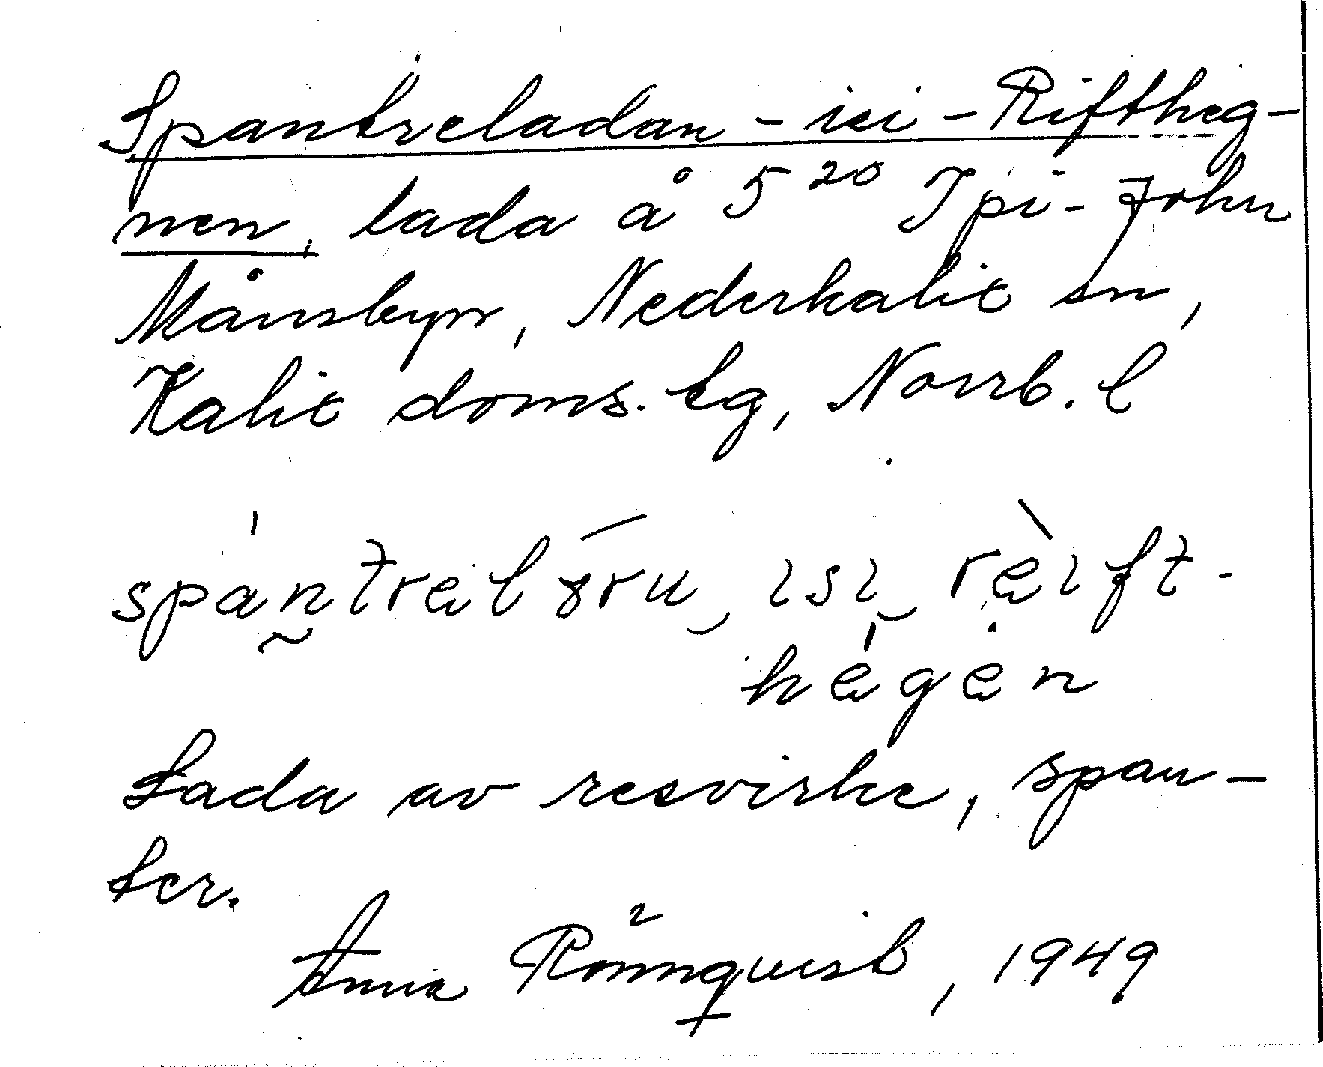 Spantreladan - isi - Riftheg-
nen, lada å 5²⁰ Ipi-John
Månsbyn, Nederkalix sn,
Kalix doms. tg, Norrb. l
Lada av resvirke, span-
ter.
Anna Rönnquist, 1949